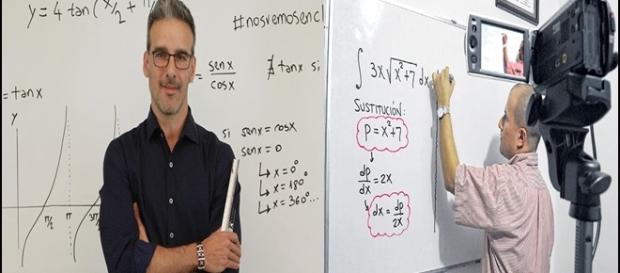 y = 4 tan(x/2 + π
#nosvemosencl
= senx/cosx
∄ tanx si
= tanx
si senx = cosx
senx = 0
↳ x = 0°
↳ x = 180°
↳ x = 360°...
y
π/2 π 3π/2
∫ 3x√(x²+7) dx
SUSTITUCIÓN:
p = x²+7
dp/dx = 2x
dx = dp/2x